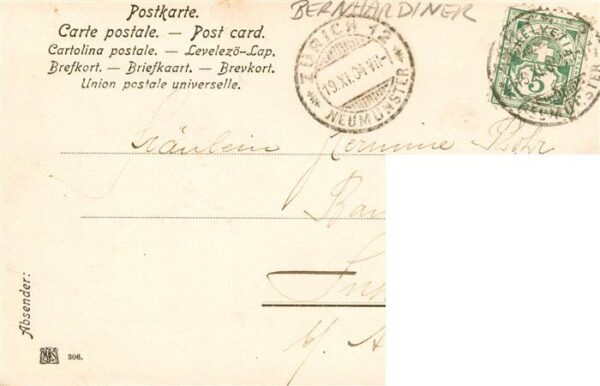 Postkarte.
Carte postale. — Post card.
Cartolina postale. — Levelező-Lap.
Brefkort. — Briefkaart. — Brevkort.
Union postale universelle.
BERNHARDINER
ZÜRICH 12
19.XI.04.VII-
NEUMÜNSTER
HELVETIA
5
Fräulein Hermine Rohr
Absender:
306.